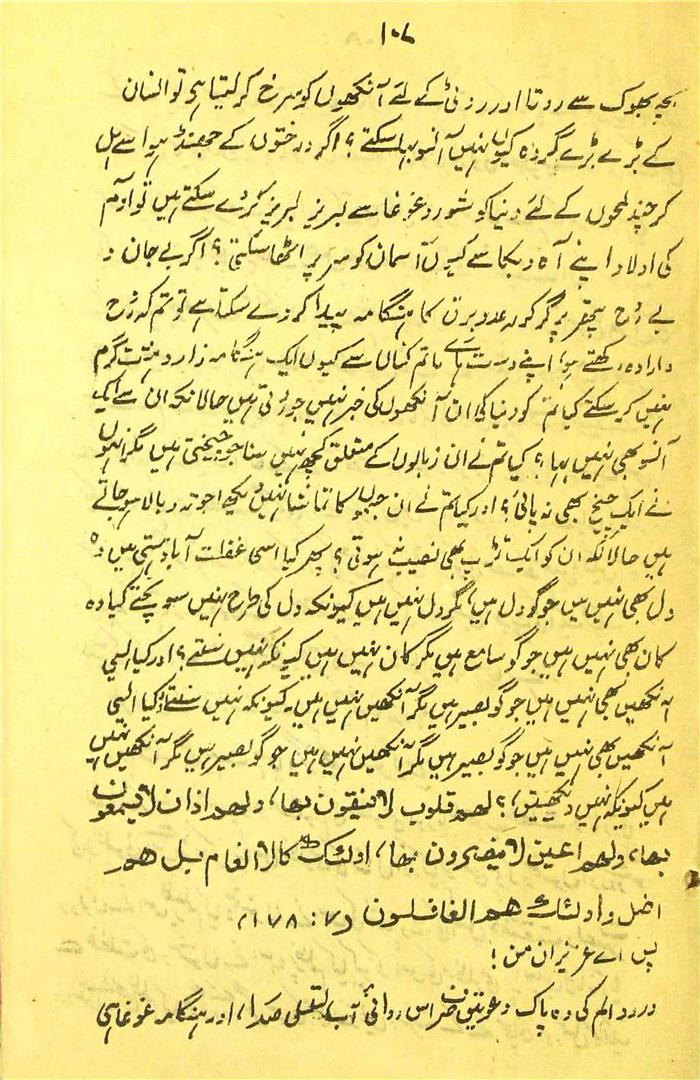 ۱۰۷
بچہ بھوک سے روتا اور روٹی کے لئے آنکھوں کو سرخ کر لیتا ہی تو انسان
کے بڑے بڑے گردہ کیوں نہیں آنسو بہا سکتے؟ اگر درختوں کے جھنڈ ہوا سے ہل
کر چند لمحوں کے لئے دنیا کو شور و غوغا سے لبریز لبریز کر دے سکتے ہیں تو آدم
کی اولاد اپنے آہ و بکا سے کیوں آسمان کو سر پر اٹھا سکتی؟ اگر بے جان و
بے رُوح پتھر پر گر کر رعد و برق کا ہنگامہ پیدا کر دے سکتا ہے تو تم کہ رُوح
و ارادہ رکھتے ہو، اپنے دست ہائے ماتم کناں سے کیوں ایک ہنگامہ زار و گرم
نہیں کر سکتے کیا تم کو دنیا کی ان آنکھوں کی خبر نہیں جو روتی ہیں حالانکہ ان سے ایک
آنسو بھی نہیں بہا؟ کیا تم نے ان زبانوں کے متعلق کچھ نہیں سنا جو چیختی ہیں مگر انہوں
نے ایک چیخ بھی نہ پائی؟ اور کیا تم نے ان کا تماشا نہیں دیکھا جو تہ و بالا ہو جاتے
ہیں حالانکہ ان کو ایک تڑپ بھی نصیب نہ ہوتی؟ پھر کیا اسی غفلت آباد ہستی میں وہ
دل بھی نہیں ہیں جو گو دل ہیں مگر دل نہیں ہیں کیونکہ دل کی طرح نہیں سوچتے کیا وہ
کان بھی نہیں ہیں جو گو سامع ہیں مگر کان نہیں ہیں کیونکہ نہیں سنتے؟ اور کیا ایسی
آنکھیں بھی نہیں ہیں جو گو بصیر ہیں مگر آنکھیں نہیں ہیں۔ کیونکہ نہیں سنتے اور کیا ایسی
آنکھیں بھی نہیں ہیں جو گو بصیر ہیں مگر آنکھیں نہیں ہیں جو گو بصیر ہیں مگر آنکھیں نہیں
ہیں کیونکہ نہیں دیکھیتیں؟ لھم قلوب لا یفقون بھا، ولھم اذان لا یسمعون
بھا، ولھم اعین لا یبصرون بھا، اولئک کالانعام بل ھم
اضل و اولئک ھم الغافلون (۷: ۱۷۸)
پس اے عزیزان من!
درد و الم کی وہ پاک دعوتیں آب صدا، اور ہنگامہ غوغا ہی